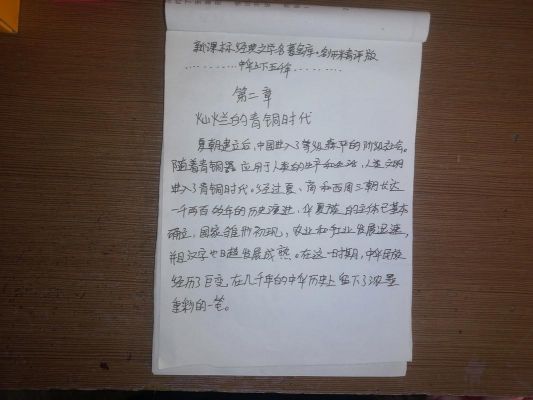 新课标经典文学名著宝库·名师精评版
………… 中华上下五千年 …………
第二章
灿烂的青铜时代
夏朝建立后,中国进入了等级森严的阶级社会。
随着青铜器应用于人类的生产和生活,人类文明
进入了青铜时代。经过夏、商和西周三朝长达
一千两百多年的历史演进,华夏族的主体已基本
确立,国家雏形初现,农业和手工业发展迅速,
并且汉字也日趋发展成熟。在这一时期,中华民族
经历了巨变,在几千年的中华历史上留下了浓墨
重彩的一笔。